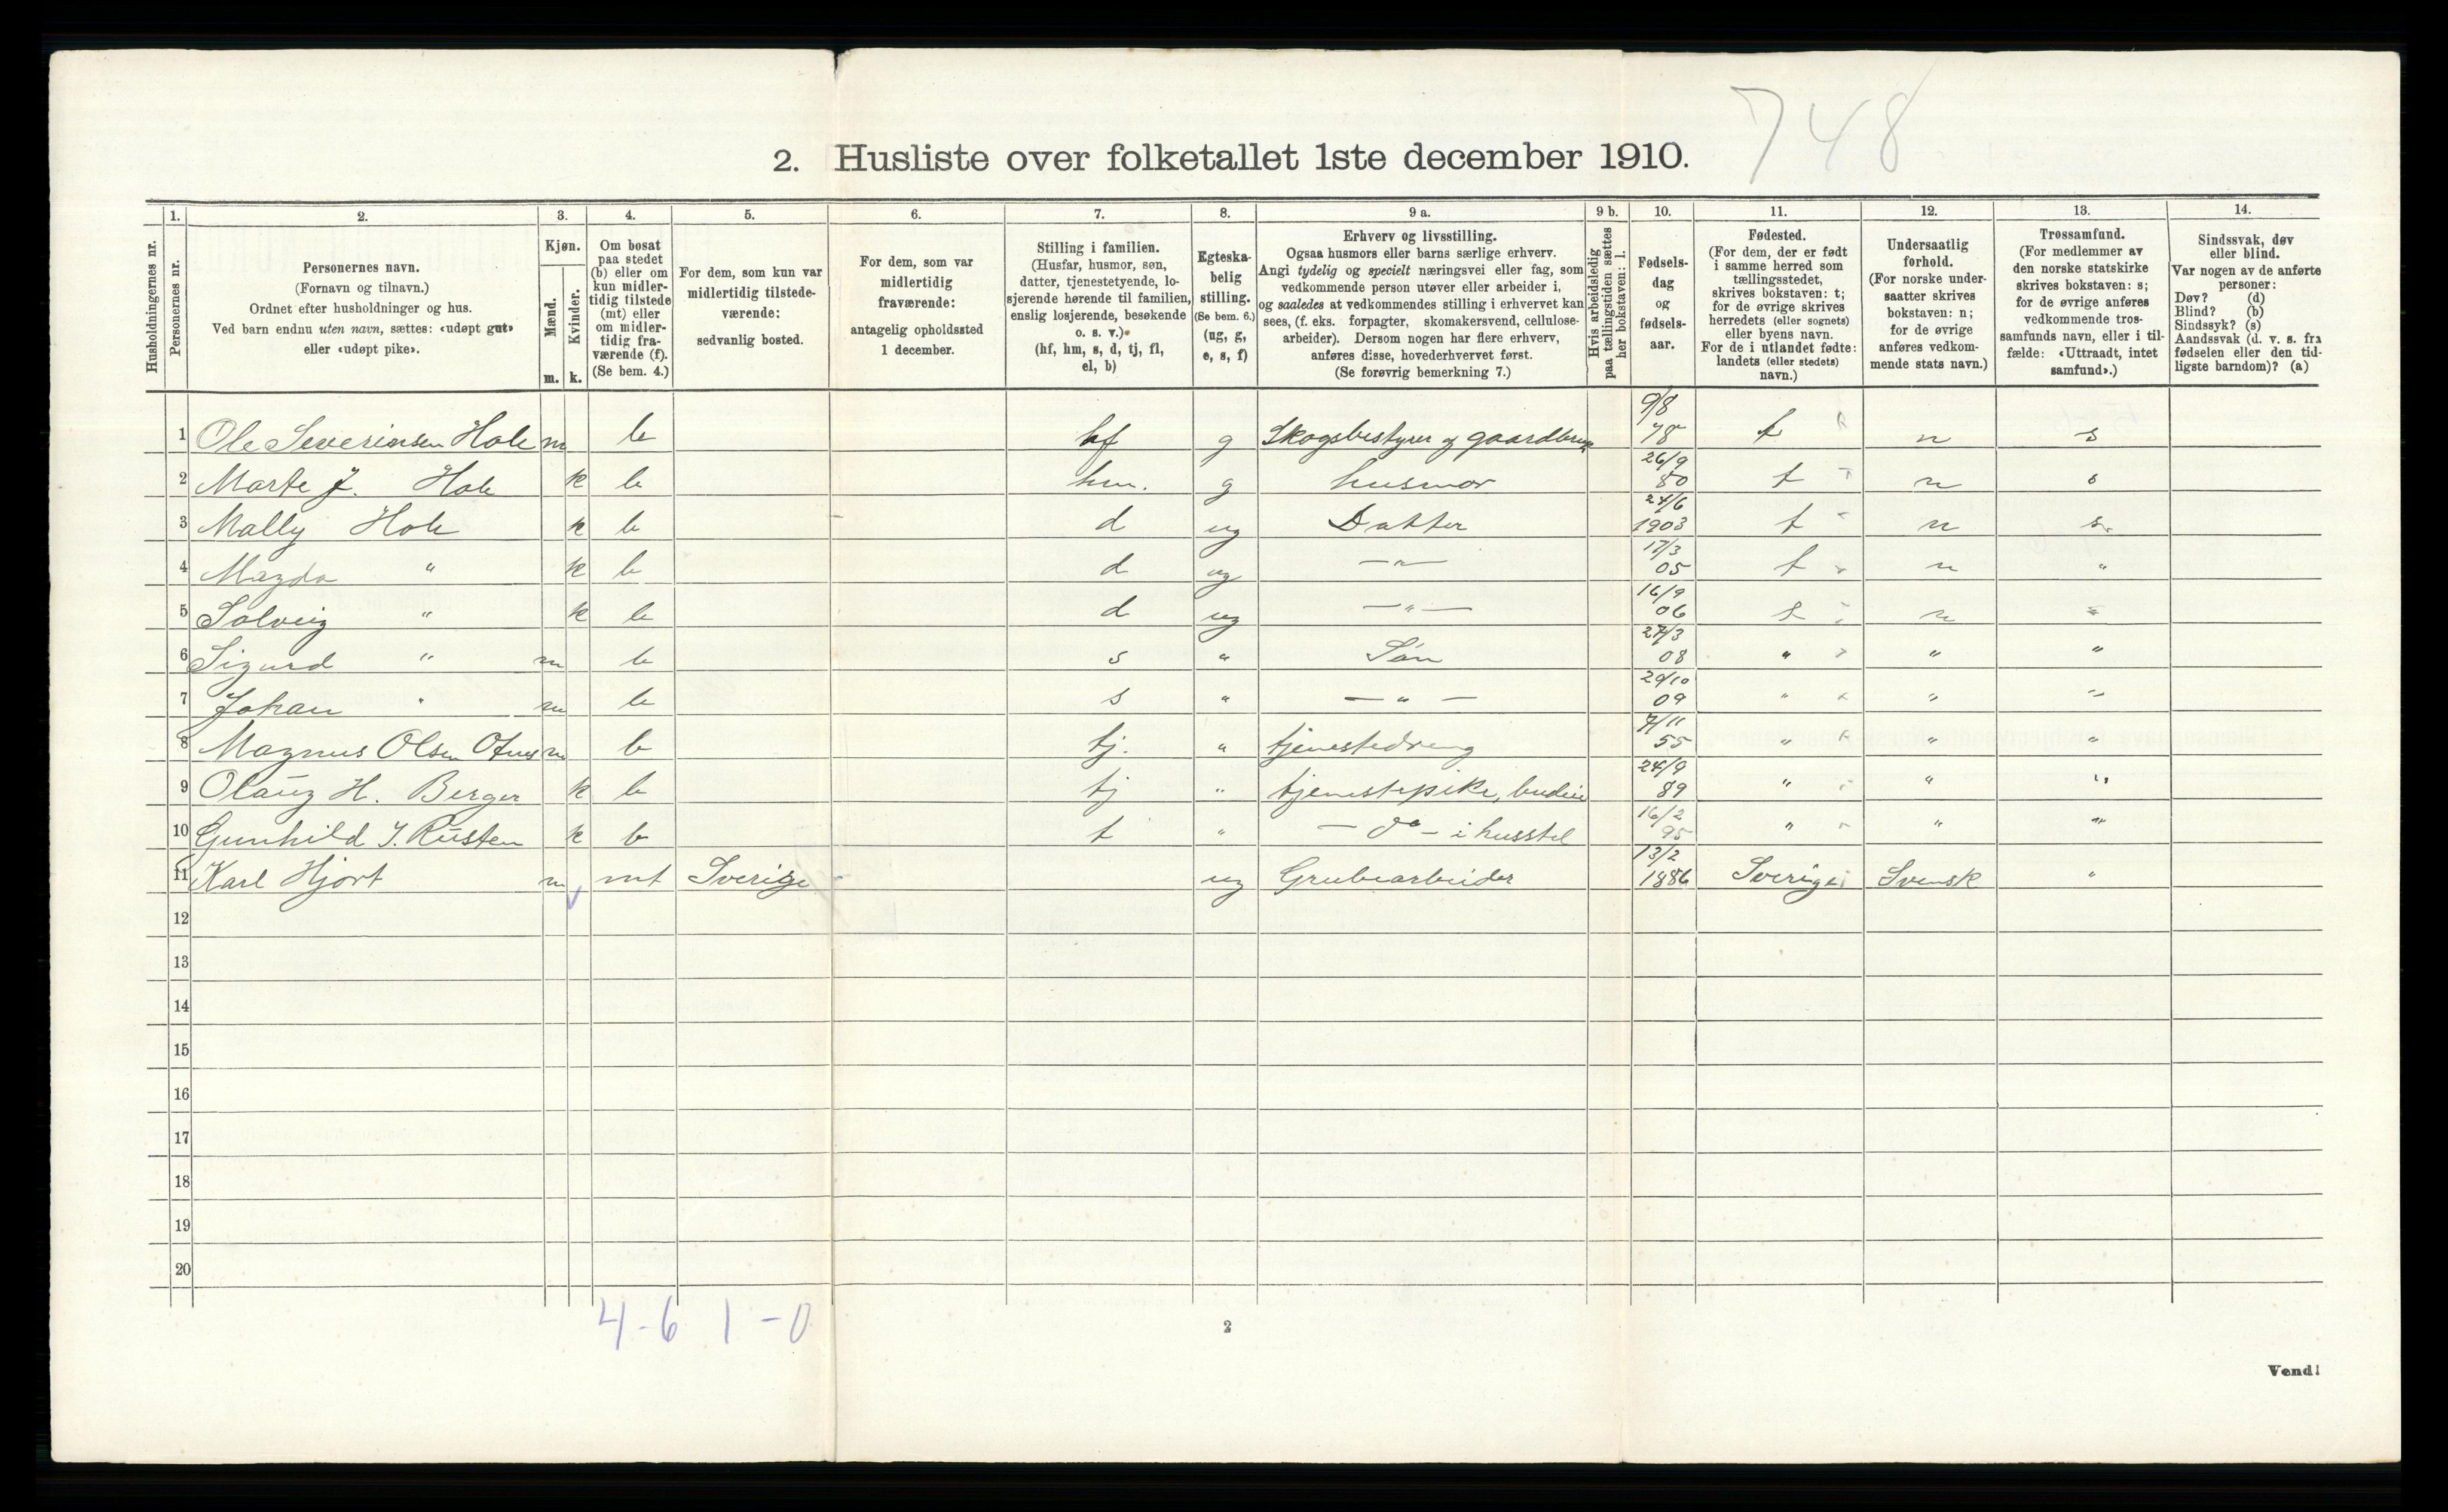 748
2. Husliste over folketallet 1ste december 1910.
Husholdningernes nr.
1. Personernes nr.
2. Personernes navn. (Fornavn og tilnavn.) Ordnet efter husholdninger og hus. Ved barn endnu uten navn, sættes: «udøpt gut» eller «udøpt pike».
3. Kjøn. Mænd. m. Kvinder. k.
4. Om bosat paa stedet (b) eller om kun midler-tidig tilstede (mt) eller om midler-tidig fra-værende (f). (Se bem. 4.)
5. For dem, som kun var midlertidig tilstede-værende: sedvanlig bosted.
6. For dem, som var midlertidig fraværende: antagelig opholdssted 1 december.
7. Stilling i familien. (Husfar, husmor, søn, datter, tjenestetyende, lo-sjerende hørende til familien, enslig losjerende, besøkende o. s. v.) (hf, hm, s, d, tj, fl, el, b)
8. Egteska-belig stilling. (Se bem. 6.) (ug, g, e, s, f)
9 a. Erhverv og livsstilling. Ogsaa husmors eller barns særlige erhverv. Angi tydelig og specielt næringsvei eller fag, som vedkommende person utøver eller arbeider i, og saaledes at vedkommendes stilling i erhvervet kan sees, (f. eks. forpagter, skomakersvend, cellulose-arbeider). Dersom nogen har flere erhverv, anføres disse, hovederhvervet først. (Se forøvrig bemerkning 7.)
9 b. Hvis arbeidsledig paa tællingstiden sættes her bokstaven: l.
10. Fødsels-dag og fødsels-aar.
11. Fødested. (For dem, der er født i samme herred som tællingsstedet, skrives bokstaven: t; for de øvrige skrives herredets (eller sognets) eller byens navn. For de i utlandet fødte: landets (eller stedets) navn.)
12. Undersaatlig forhold. (For norske under-saatter skrives bokstaven: n; for de øvrige anføres vedkom-mende stats navn.)
13. Trossamfund. (For medlemmer av den norske statskirke skrives bokstaven: s; for de øvrige anføres vedkommende tros-samfunds navn, eller i til-fælde: «Uttraadt, intet samfund».)
14. Sindssvak, døv eller blind. Var nogen av de anførte personer: Døv? (d) Blind? (b) Sindssyk? (s) Aandssvak (d. v. s. fra fødselen eller den tid-ligste barndom)? (a)
1 Ole Severinsen Hole m b hf g Skogsbestyrer og gaardbrug 9/8 78 t n s
2 Marte J. Hole k b hm. g husmor 26/9 80 t n s
3 Mally Hole k b d ug Datter 24/6 1903 t n s.
4 Magda " k b d ug —"— 17/3 05 t n "
5 Solveig " k b d ug —"— 16/9 06 t n "
6 Sigurd " m b s " Søn 27/3 08 " " "
7 Johan " m b s " —"— 29/10 09 " " "
8 Magnus Olsen m b tj. " tjenestedreng 7/11 55 " " "
9 Olaug H. Berger k b tj " tjenestepike, budeie 24/9 89 " " "
10 Gunhild J. Rusten k b t " — do — i husstel 16/2 95 " " "
11 Karl Hjort m mt Sverige ug Grubearbeider 13/2 1886 Sverige Svensk "
12
13
14
15
16
17
18
19
20
4-6 1-0
2
Vend!